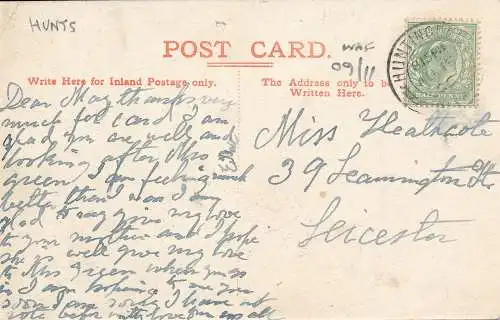 HUNTS
POST CARD.
WAF
09/11
HUNTINGD
Write Here for Inland Postage only.
The Address only to be
Written Here.
Dear May thanks very
much for card I am
glad you are well and
looking after Mrs
green I am feeling much
better than I was I am
glad to say give my love
to your mother and I hope
she is well give my love
to Mrs Green when you go
in I am looking to see you
soon I am sorry I have not
wrote before with love from us all
Miss Heathcote
39 Leamington St
Leicester